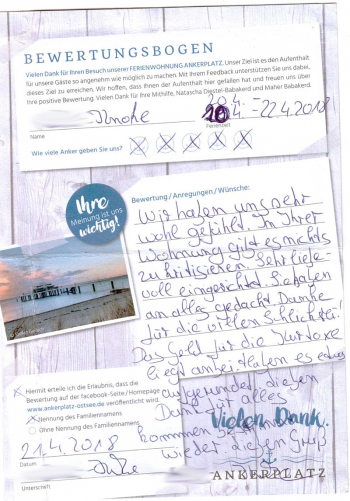 BEWERTUNGSBOGEN
Vielen Dank für Ihren Besuch unserer FERIENWOHNUNG ANKERPLATZ. Unser Ziel ist es den Aufenthalt
für unsere Gäste so angenehm wie möglich zu machen. Mit Ihrem Feedback unterstützen Sie uns dabei,
dieses Ziel zu erreichen. Wir hoffen, dass Ihnen der Aufenthalt hier gefallen hat und freuen uns über
Ihre positive Bewertung. Vielen Dank für Ihre Mithilfe, Natascha Destel-Babakerd und Maher Babakerd.
20.4.-22.4.2018
Name
Ferienzeit
Wie viele Anker geben Sie uns?
Ihre
Meinung ist uns
wichtig!
Bewertung / Anregungen / Wünsche:
Wir haben uns sehr
wohl gefühlt. In Ihrer
Wohnung gibt es nichts
zu kritisieren. Sehr liebe-
voll eingerichtet. Sie haben
an alles gedacht. Danke
für die vielen
Das Geld für die Kurtaxe
liegt anbei. Haben es etwas
aufgerundet, diesen
Dank für alles
Vielen Dank.
kommen
wieder. Lieben Gruß
Hiermit erteile ich die Erlaubnis, dass die
Bewertung auf der facebook-Seite / Homepage
www.ankerplatz-ostsee.de veröffentlicht wird.
Nennung des Familiennamens
Ohne Nennung des Familiennamens
21.4.2018
Datum
Unterschrift
ANKERPLATZ